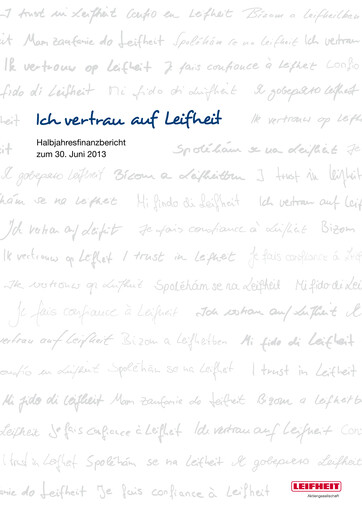 I trust in Leifheit Confio en Leifheit Bizom a leifheitben
it Mam zaufanie do Leifheit Spoléhám se na Leifheit Ich vertrau
Ik vertrouw op leifheit Je fais confiance à Leifheit Confio
fido di Leifheit Mi fido di Leifheit
Ich vertrau auf Leifheit
Ik vertrouw op Leifheit
Halbjahresfinanzbericht
zum 30. Juni 2013
Spoléhám se na Leifheit Je
Bizom a Leifheitben I trust in Leifheit
hám se na Leifheit Mi fido di Leifheit Ich vertrau auf Leif
Je fais confiance à Leifheit Bizom
Ik vertrouw op Leifheit I trust in Leifheit Je fais confiance à Leif
Ik vertrouw op Leifheit Spoléhám se na Leifheit Mi fido di Leif
Je fais confiance à Leifheit Ich vertrau auf Leifheit Ik
vertrau auf Leifheit Bizom a Leifheitben Mi fido di Leifheit
en Leifheit Spoléhám se na Leifheit I trust in Leifheit
Mi fido di Leifheit Mam zaufanie do Leifheit Bizom a Leifheitb
Leifheit Je fais confiance à Leifheit Ich vertrau auf Leifheit Con
I trust in Leifheit Spoléhám se na Leifheit
anie do Leifheit Je fais confiance à Leifheit
LEIFHEIT
Aktiengesellschaft